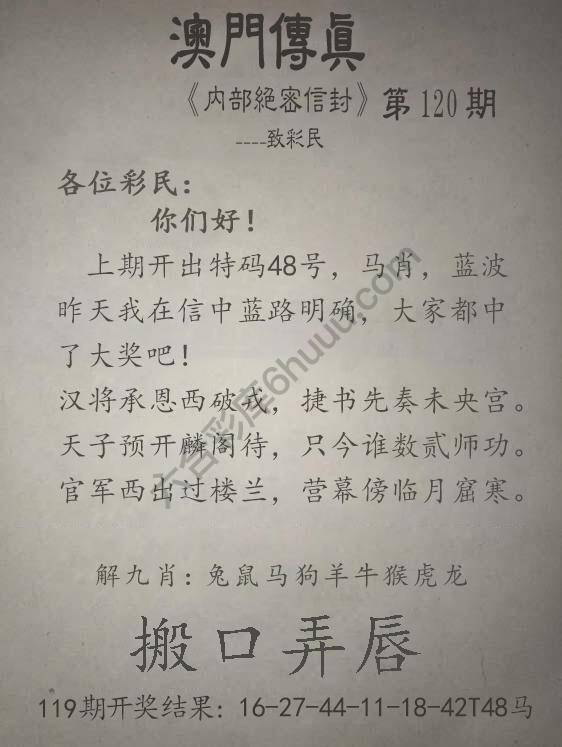 澳門傳眞
《内部絕密信封》第120期
----致彩民
各位彩民：
你们好！
上期开出特码48号，马肖，蓝波
昨天我在信中蓝路明确，大家都中
了大奖吧！
汉将承恩西破戎，捷书先奏未央宫。
天子预开麟阁待，只今谁数贰师功。
官军西出过楼兰，营幕傍临月窟寒。
解九肖：兔鼠马狗羊牛猴虎龙
搬口弄唇
119期开奖结果：16-27-44-11-18-42T48马
六合彩库6huuu.com